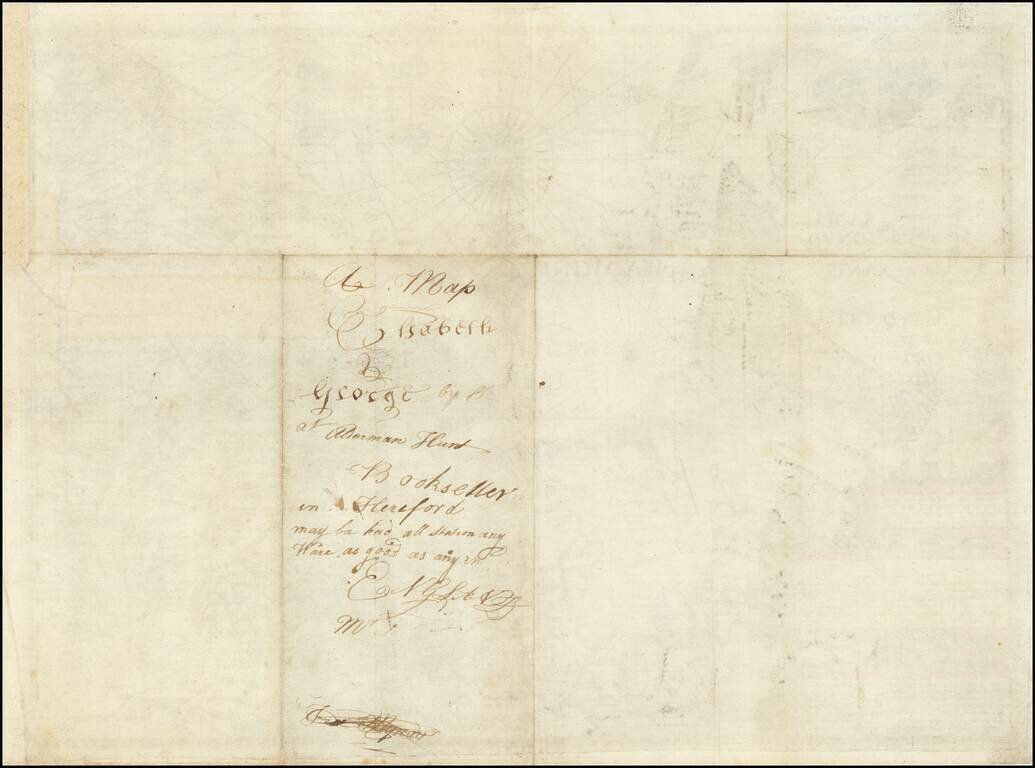 A Map
Elisabeth
&
George by
at Alderman Hunt
Bookseller
in Hereford
may be had all Stationary
Ware as good as any in
ENGLAND
Mr